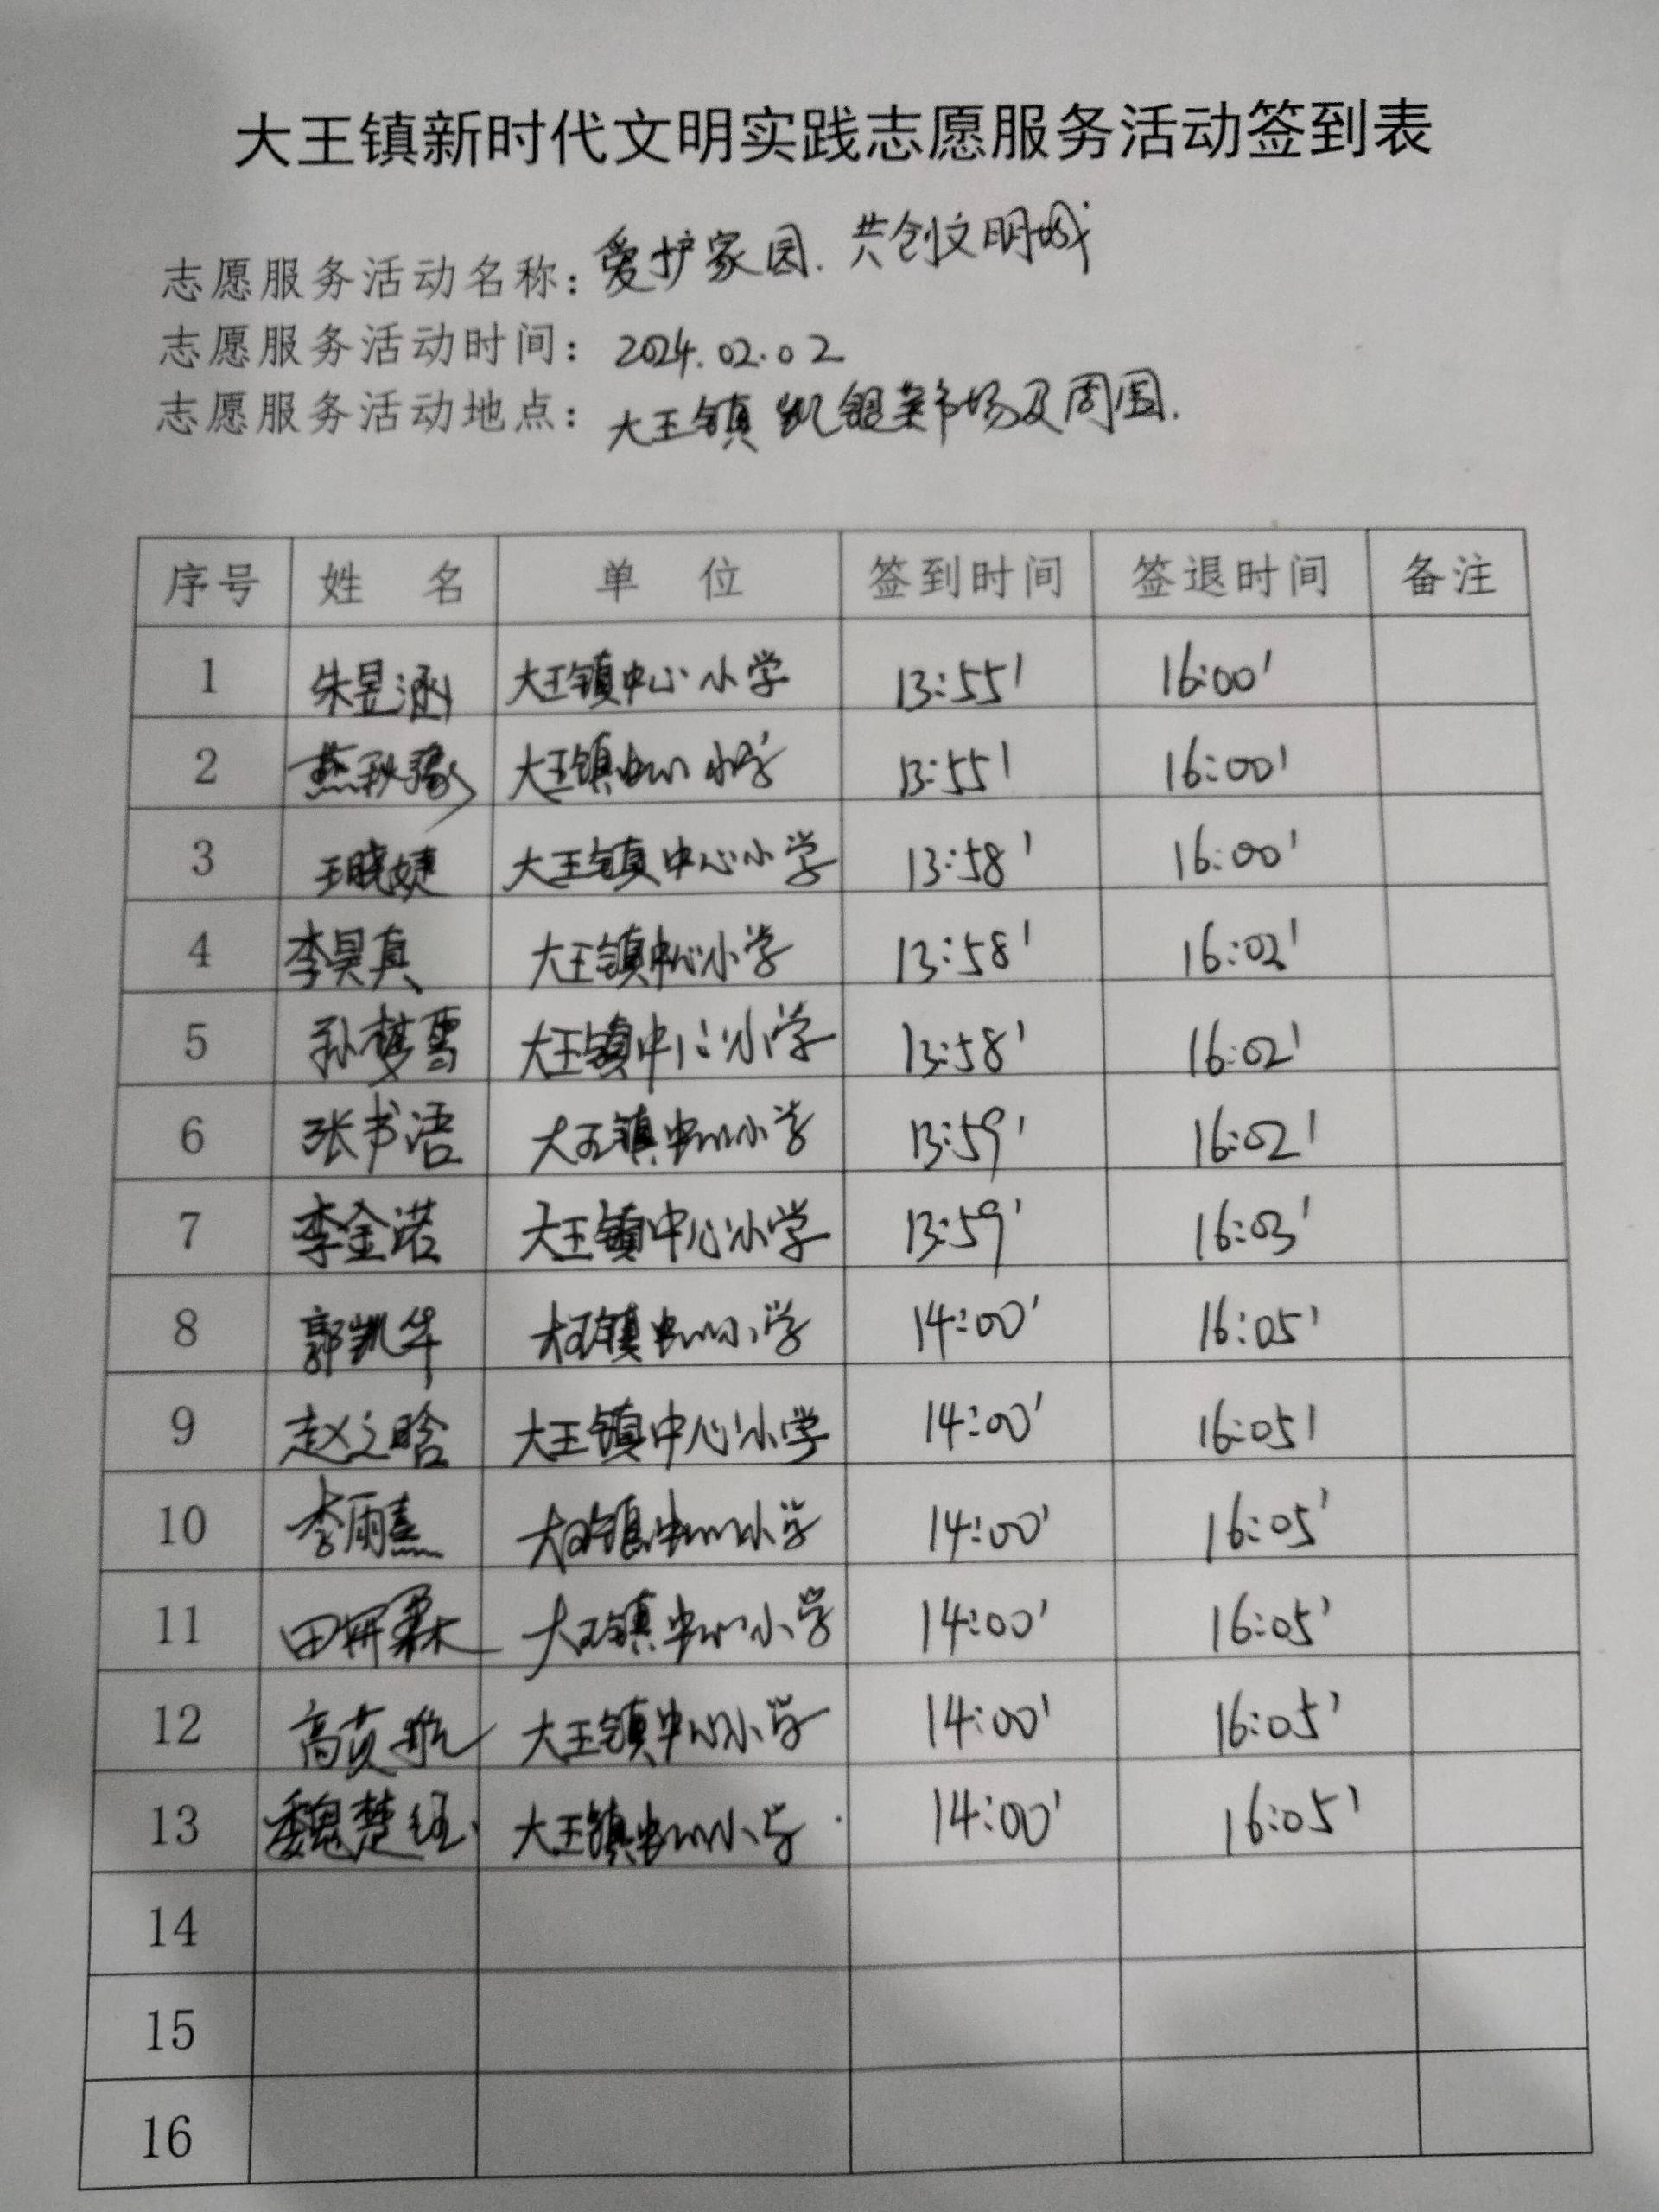 大王镇新时代文明实践志愿服务活动签到表
志愿服务活动名称：爱护家园.共创文明城
志愿服务活动时间：2024.02.02
志愿服务活动地点：大王镇凯银菜市场及周围.
序号 姓 名 单 位 签到时间 签退时间 备注
1 朱昱涵 大王镇中心小学 13:55' 16:00'
2 燕秋 大王镇中心小学 13:55' 16:00'
3 王晓婕 大王镇中心小学 13:58' 16:00'
4 李昊真 大王镇中心小学 13:58' 16:02'
5 孙梦雪 大王镇中心小学 13:58' 16:02'
6 张书语 大王镇中心小学 13:59' 16:02'
7 李金诺 大王镇中心小学 13:59' 16:03'
8 郭凯华 大王镇中心小学 14:00' 16:05'
9 赵之晗 大王镇中心小学 14:00' 16:05'
10 李雨熹 大王镇中心小学 14:00' 16:05'
11 田妍霖 大王镇中心小学 14:00' 16:05'
12 高 航 大王镇中心小学 14:00' 16:05'
13 魏楚 大王镇中心小学 14:00' 16:05'
14
15
16